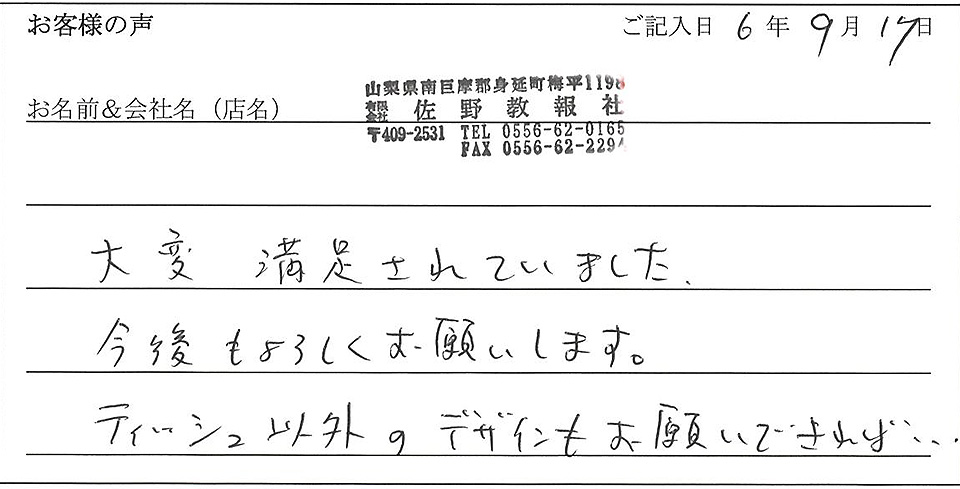 お客様の声 ご記入日 6年9月17日
山梨県南巨摩郡身延町梅平1198
お名前&会社名(店名) 有限会社 佐野教報社
〒409-2531 TEL 0556-62-0165
FAX 0556-62-2294
大変 満足されていました。
今後もよろしくお願いします。
ティッシュ以外のデザインもお願いできれば…